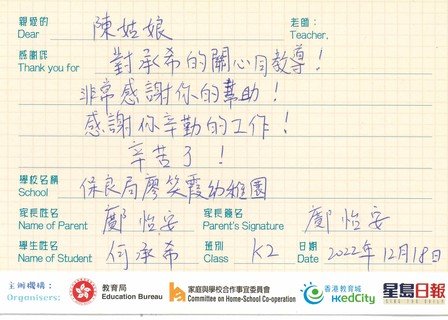 親愛的 陳姑娘 老師：
Dear Teacher,
感謝你 對承希的關心同教導！
Thank you for
非常感謝你的幫助！
感謝你辛勤的工作！
辛苦了！
學校名稱 保良局廖笑霞幼稚園
School
家長姓名 鄺怡安 家長簽名 鄺怡安
Name of Parent Parent's Signature
學生姓名 何承希 班別 K2 日期 2022年12月18日
Name of Student Class Date
主辦機構： 教育局 家庭與學校合作事宜委員會 香港教育城 星島日報
Organisers: Education Bureau Committee on Home-School Co-operation HKedCity SING TAO DAILY